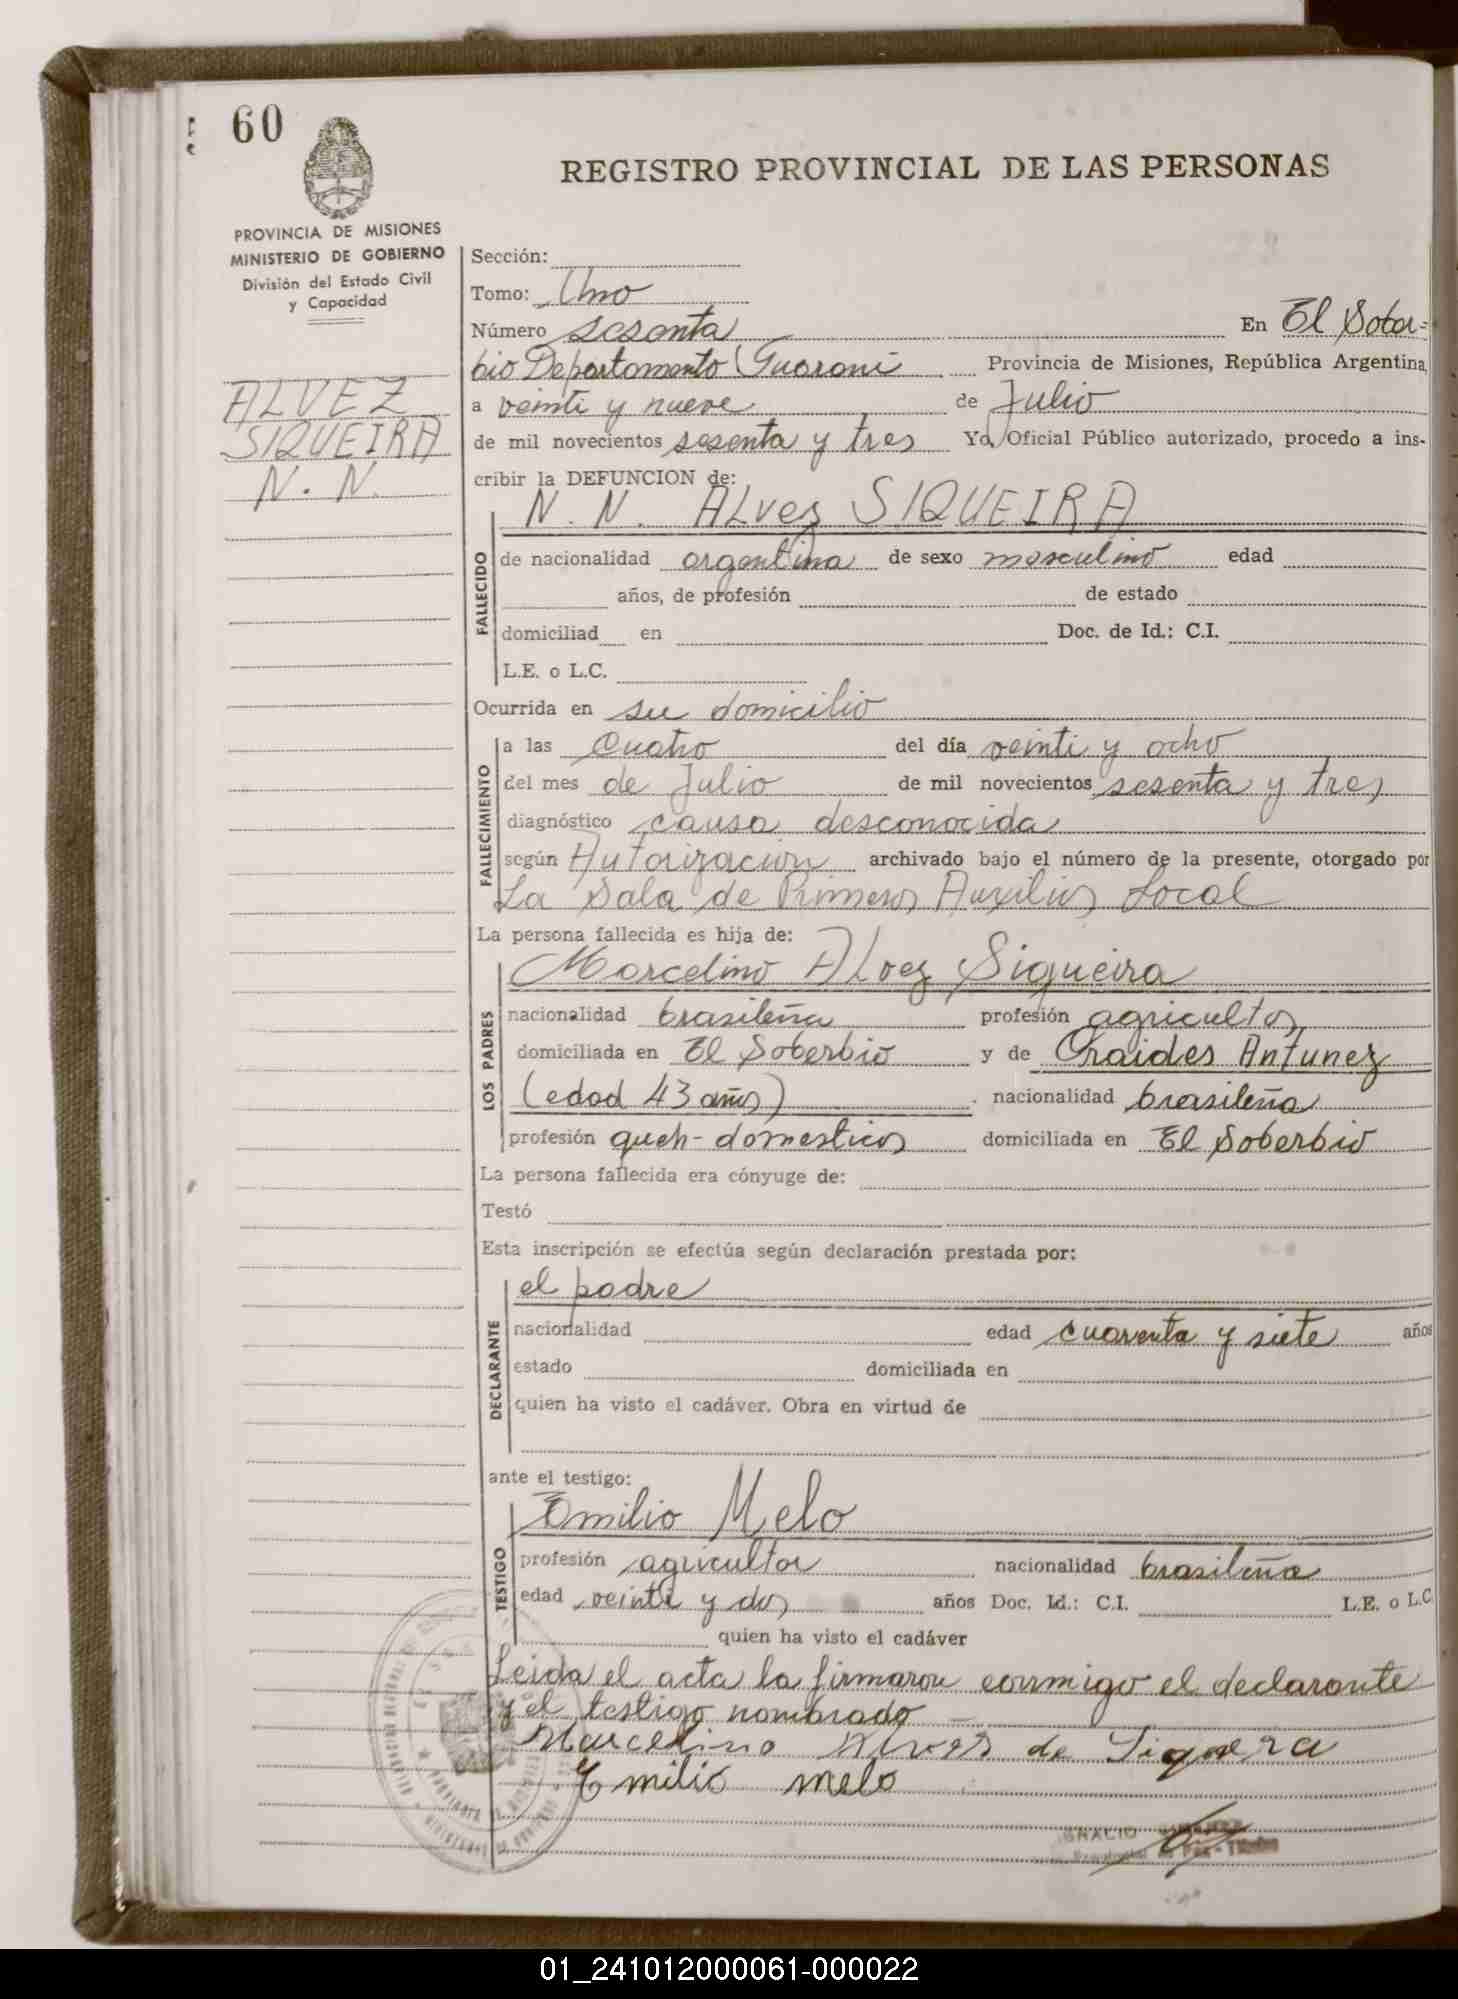 60
REGISTRO PROVINCIAL DE LAS PERSONAS
PROVINCIA DE MISIONES
MINISTERIO DE GOBIERNO
División del Estado Civil
y Capacidad
ALVEZ
SIQUEIRA
N. N.
Sección:
Tomo: Uno
Número sesenta En El Sober=
bio Departamento Guaraní Provincia de Misiones, República Argentina,
a veinti y nueve de Julio
de mil novecientos sesenta y tres Yo, Oficial Público autorizado, procedo a ins-
cribir la DEFUNCION de:
N. N. ALvez SIQUEIRA
FALLECIDO
de nacionalidad argentina de sexo masculino edad
años, de profesión de estado
domiciliad en Doc. de Id.: C.I.
L.E. o L.C.
Ocurrida en su domicilio
FALLECIMIENTO
a las cuatro del día veinti y ocho
del mes de Julio de mil novecientos sesenta y tres
diagnóstico causa desconocida
según Autorización archivado bajo el número de la presente, otorgado por
La Sala de Primeros Auxilios Local
La persona fallecida es hija de:
LOS PADRES
Marcelino ALvez Siqueira
nacionalidad brasileña profesión agricultor
domiciliada en El Soberbio y de Oraides Antunez
(edad 43 años) nacionalidad brasileña
profesión queh-domesticos domiciliada en El Soberbio
La persona fallecida era cónyuge de:
Testó
Esta inscripción se efectúa según declaración prestada por:
DECLARANTE
el padre
nacionalidad edad cuarenta y siete años
estado domiciliada en
quien ha visto el cadáver. Obra en virtud de
ante el testigo:
TESTIGO
Emilio Melo
profesión agricultor nacionalidad brasileña
edad veinte y dos años Doc. Id.: C.I. L.E. o L.C
quien ha visto el cadáver
Leida el acta la firmaron conmigo el declarante
y el testigo nombrado
Marcelino Alves de Siquera
Emilio melo
01_241012000061-000022